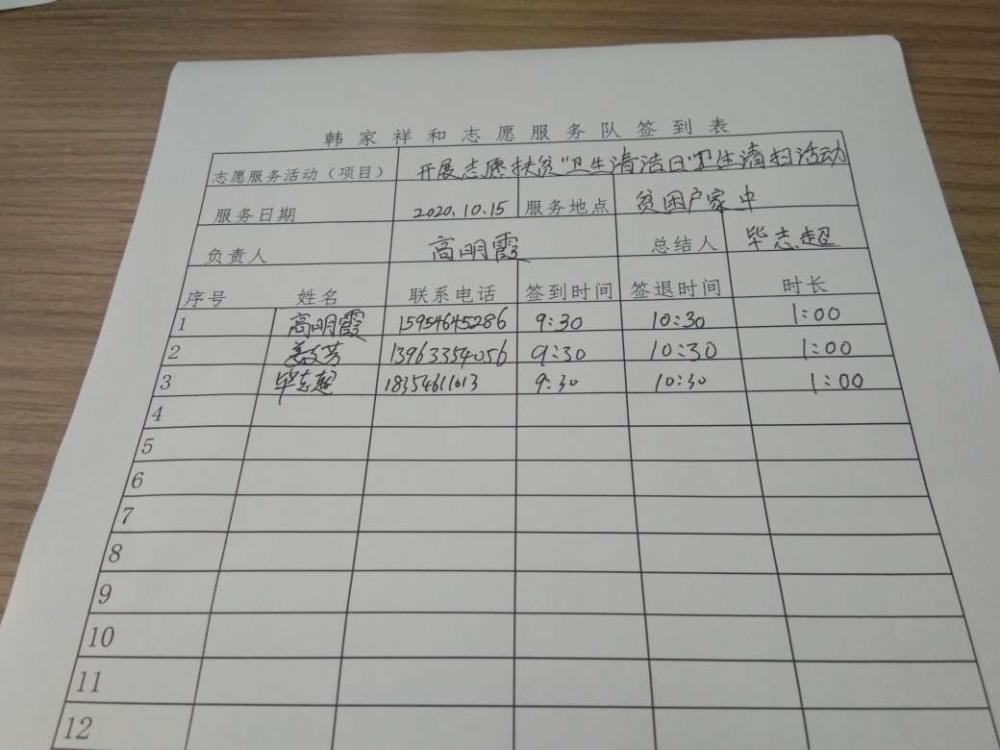 韩家祥和志愿服务队签到表
志愿服务活动（项目） 开展志愿扶贫"卫生清洁日"卫生清扫活动
服务日期 2020.10.15 服务地点 贫困户家中
负责人 高明霞 总结人 毕志超
序号 姓名 联系电话 签到时间 签退时间 时长
1 高明霞 15954645286 9:30 10:30 1:00
2 13963354056 9:30 10:30 1:00
3 毕志超 18354611013 9:30 10:30 1:00
4
5
6
7
8
9
10
11
12